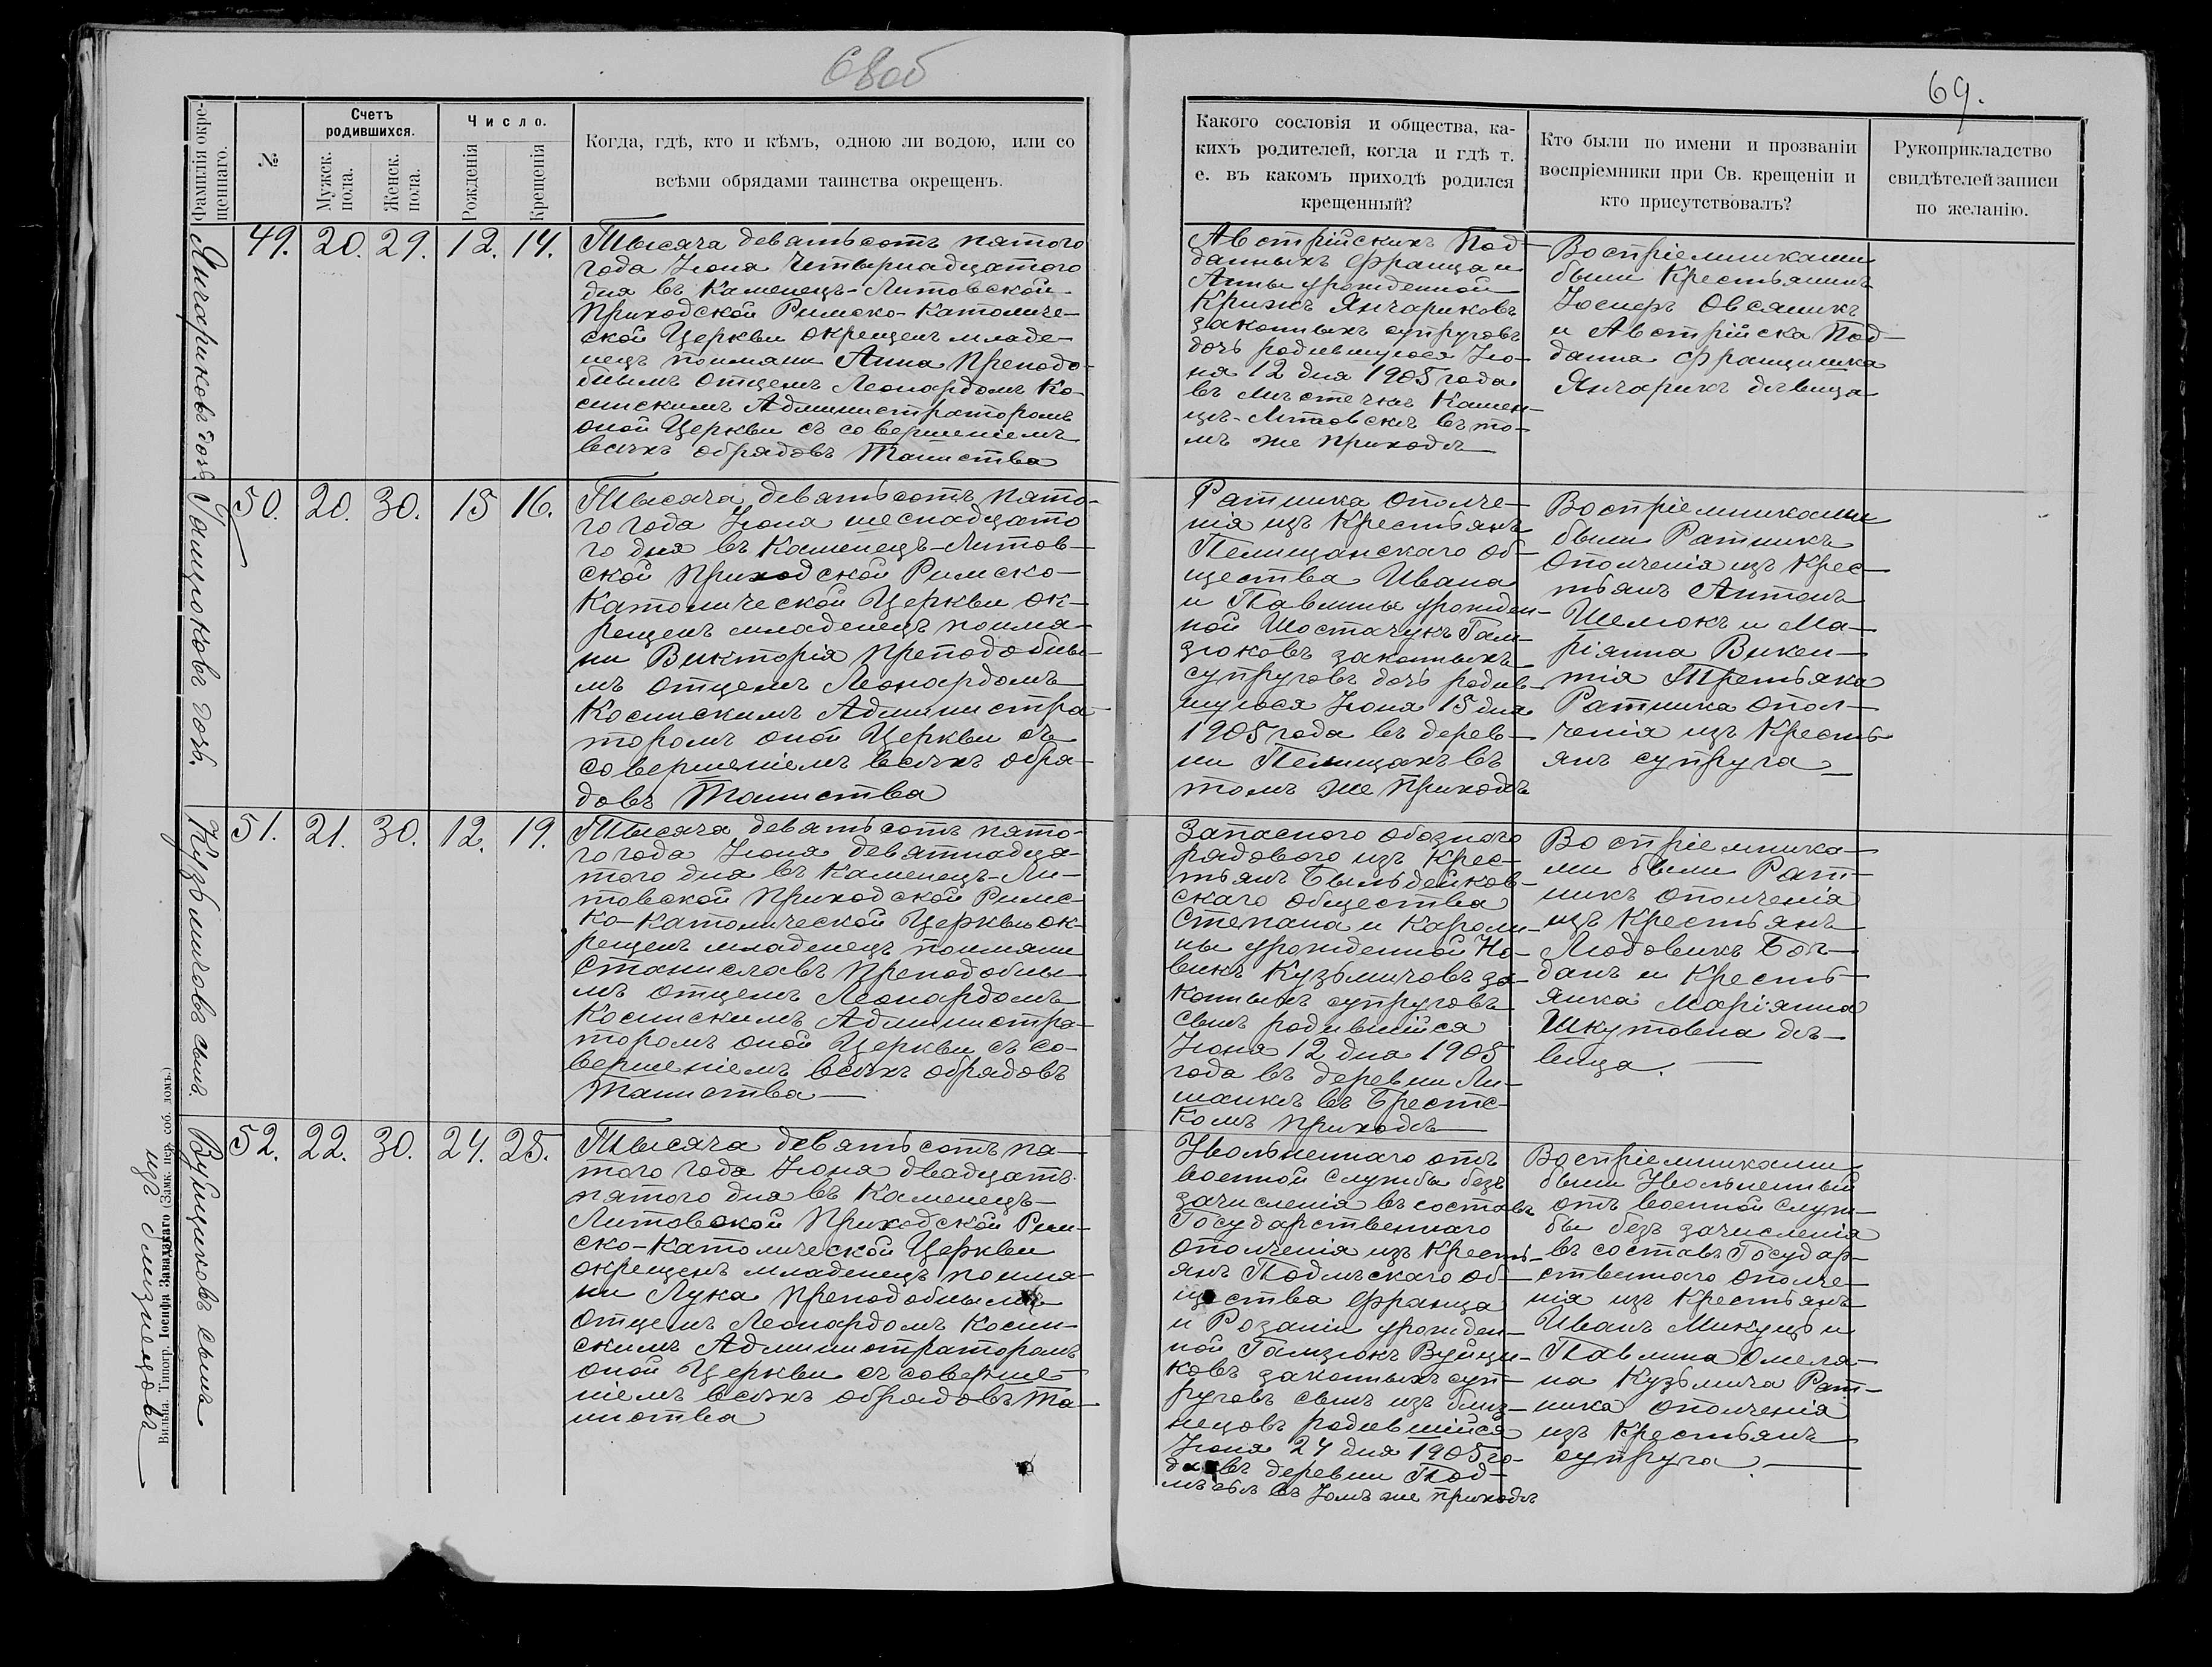 68об
69.
Фамилія и окре-
щеннаго.
№
Счетъ
родившихся.
Мужск.
пола.
Женск.
пола.
Число.
Рожденія
Крещенія
Когда, гдѣ, кто и кѣмъ, одною ли водою, или со
всѣми обрядами таинства окрещенъ.
Какого сословія и общества, ка-
кихъ родителей, когда и гдѣ т.
е. въ какомъ приходѣ родился
крещенный?
Кто были по имени и прозваніи
воспріемники при Св. крещеніи и
кто присутствовалъ?
Рукоприкладство
свидѣтелей записи
по желанію.
Янчариковъ дочь
49. 20. 29. 12. 14.
Тысяча девятьсотъ пятого
года Іюня Четырнадцатого
дня въ Каменецъ-Литовской
Приходской Римско-Католиче-
ской Церкви окрещенъ младе-
нецъ поимяни Анна Преподо-
бнымъ Отцемъ Леонардомъ Ко-
синскимъ Администраторомъ
оной Церкви съ совершеніемъ
всѣхъ обрядовъ Таинства
Австрійскихъ Под-
данныхъ Франца и
Анны урожденной
Крижъ Янчариковъ
законныхъ супруговъ
дочь родившуюся Ію-
ня 12 дня 1905 года
въ мѣстечкѣ Камен-
цѣ-Литовскѣ въ то-
мъ же приходѣ
Воспріемниками
были Крестьянинъ
Іосифъ Овсяникъ
и Австрійска Под-
данна Францишка
Янчарикъ дѣвица
Гамзюковъ дочь.
50. 20. 30. 15 16.
Тысяча девятьсотъ пято-
го года Іюня шеснадцато
го дня въ Каменецъ-Литов-
ской Приходской Римско-
Католической Церкви ок-
рещенъ младенецъ поимя-
ни Викторія Преподобны-
мъ Отцемъ Леонардомъ
Косинскимъ Администра-
торомъ оной Церкви съ
совершеніемъ всѣхъ обря-
довъ Таинства
Ратника ополче-
нія изъ Крестьянъ
Пелищанскаго об-
щества Ивана
и Павлины урожден-
ной Шостачукъ Гам-
зюковъ законныхъ
супруговъ дочь родив-
шуюся Іюня 15 дня
1905 года въ дерев-
ни Пелищахъ въ
томъ же приходѣ
Воспріемниками
были Ратникъ
Ополченія изъ Крес-
тьянъ Антонъ
Шелюкъ и Ма-
ріянна Викен-
тія Третьяка
Ратника опол-
ченія изъ Кресть-
янъ супруга
Кузьмичовъ сынъ.
51. 21. 30. 12. 19.
Тысяча девятьсотъ пято-
го года Іюня девятнадца-
того дня въ Каменецъ-Ли-
товской Приходской Римс-
ко-Католической Церкви ок-
рещенъ младенецъ поимяни
Станиславъ Преподобны-
мъ Отцемъ Леонардомъ
Косинскимъ Администра-
торомъ оной Церкви съ со-
вершеніемъ всѣхъ обрядовъ
Таинства
Запасного обозного
рядового изъ Крес-
тьянъ Быльдейков-
скаго общества
Степана и Кароли-
ны урожденной Но-
викъ Кузьмичовъ за-
конныхъ супруговъ
сынъ родившійся
Іюня 12 дня 1905
года въ деревни Ли-
шанкѣ въ Брестс-
комъ приходѣ
Воспріемника-
ми были Рат-
никъ ополченія
изъ Крестьянъ
Людовикъ Бог-
данъ и Кресть-
янка Маріянна
Шкутовна дѣ-
вица.
Вуйциковъ сынъ
изъ близнецовъ
52. 22. 30. 24. 25.
Тысяча девятьсотъ пя-
того года Іюня двадцать
пятого дня въ Каменецъ-
Литовской Приходской Рим-
ско-Католической Церкви
окрещенъ младенецъ поимя-
ни Лука Преподобнымъ
Отцемъ Леонардомъ Косин-
скимъ Администраторомъ
оной Церкви съ соверше-
ніемъ всѣхъ обрядовъ Та-
инства
Увольненнаго отъ
военной службы безъ
зачисленія въ составъ
Государственнаго
ополченія изъ Кресть-
янъ Подлѣскаго об-
щества Франца
и Розаліи урожден-
ной Гамзюкъ Вуйци-
ковъ законныхъ суп-
руговъ сынъ изъ близ-
нецовъ родившійся
Іюня 24 дня 1905 го-
да въ деревни Под-
лѣсьѣ въ томъ же приходѣ
Воспріемниками
были Увольненный
отъ военной служ-
бы безъ зачисленія
въ составъ Государ-
ственнаго ополче-
нія изъ Крестьянъ
Иванъ Микуцъ и
Павлина Омеля-
на Кузьмича Рат-
ника ополченія
изъ Крестьянъ
супруга.
Вильна. Типогр. Іосифа Завадзкаго (Замк. пер. соб. домъ.)